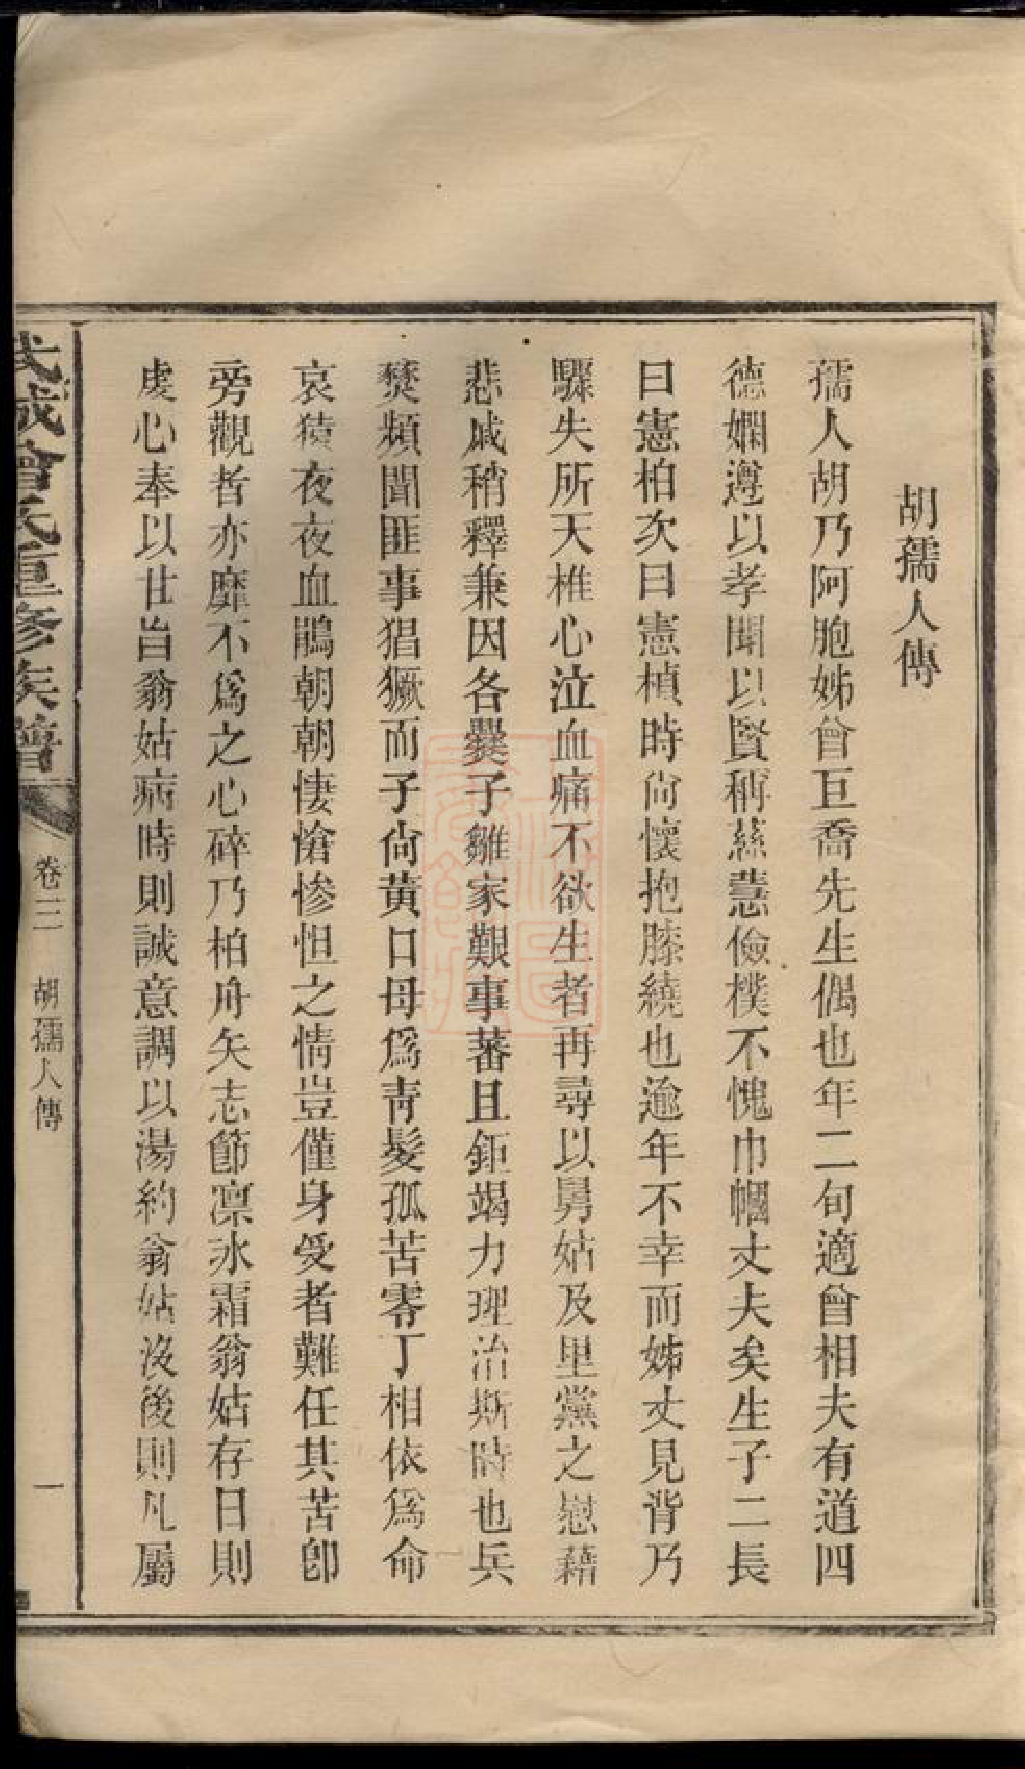 胡孺人傳
孺人胡乃阿胞姊曾巨喬先生偶也年二旬適曾相夫有道四
德嫻遵以孝聞以賢稱慈慧儉樸不愧巾幗丈夫矣生子二長
曰憲柏次曰憲楨時尙懷抱膝繞也逾年不幸而姊丈見背乃
驟失所天椎心泣血痛不欲生者再尋以舅姑及里黨之慰藉
悲戚稍釋兼因各爨子雛家艱事蕃且鉅竭力理治斯時也兵
燹頻聞匪事猖獗而子尙黃口母爲靑髮孤苦零丁相依爲命
哀猿夜夜血鵑朝朝悽愴慘怛之情豈僅身受者難任其苦卽
旁觀者亦靡不爲之心碎乃柏舟矢志節凜冰霜翁姑存日則
虔心奉以甘旨翁姑病時則誠意調以湯約翁姑沒後則凡屬
武城曾氏重修族譜
卷三
胡孺人傳
一